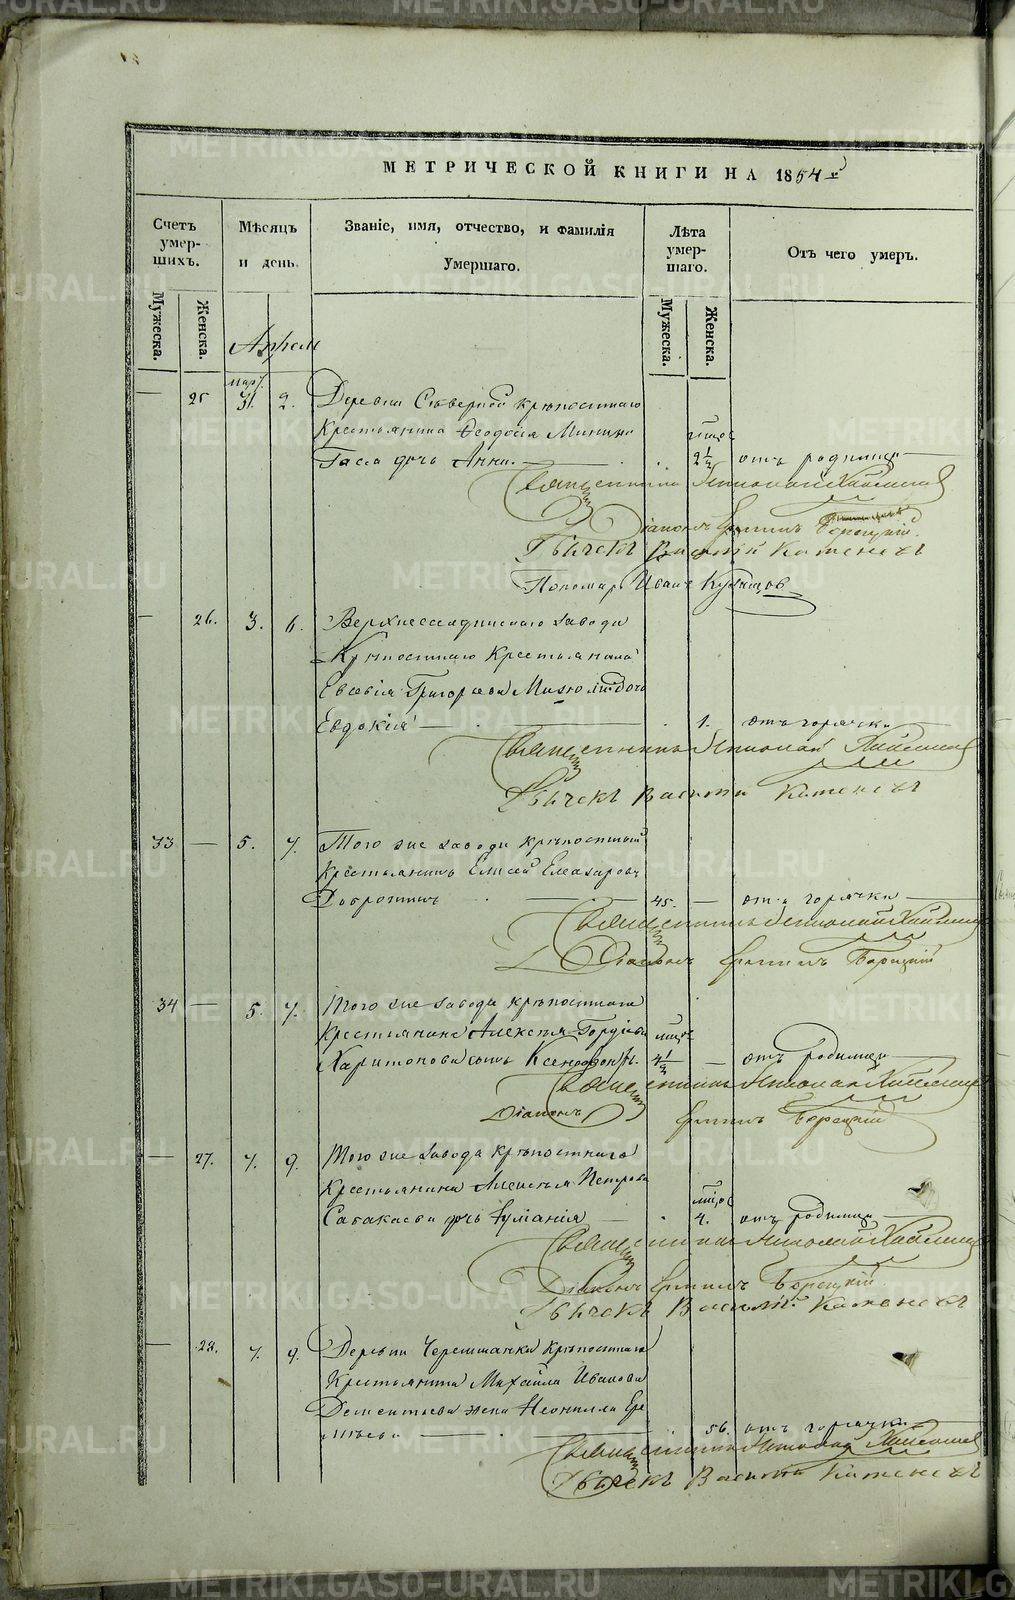 МЕТРИЧЕСКОЙ КНИГИ НА 1854й
Счетъ умер- шихъ.
Мѣсяцъ и день.
Званіе, имя, отчество, и фамилія Умершаго.
Лѣта умер- шаго.
Отъ чего умеръ.
Мужеска.
Женска.
Мужеска.
Женска.
Апрель
март.
25 31. 2. Деревни Северной крѣпостнаго
Крестьянина Ѳеодосія Минина
дочь Анна. 2 1/2 отъ родимца
Священникъ Николай
Діаконъ Борецкій.
Дьячекъ Василій
Пономарь Иванъ Кузнецов
26. 3. 6. Верхнессалдинскаго завода
Крѣпостнаго Крестьянина
Евсевія Григорьева дочь
Евдокія 1. отъ горячки
Священникъ Николай
Дьячекъ Василій
33 5. 7. Того же завода крѣпостный
Крестьянинъ Елисей Елеазаровъ
45. отъ горячки
Священникъ Николай
Діаконъ Борецкій
34 5. 7. Того же завода крѣпостнаго
Крестьянина Алексѣя Гордѣева
Харитонова сынъ Ксенофонтъ. 4 1/2 отъ родимца
Священникъ Николай
Діаконъ Борецкій
27. 7. 9. Того же завода крѣпостнаго
Крестьянина Алексѣя Петрова
дочь 4. отъ родимца
Священникъ Николай
Діаконъ Борецкій
Дьячекъ Василій
28. 7. 9. Деревни Черемшанки Крѣпостнаго
Крестьянина Михайла Иванова
Дементьева жена Неонилла Ере
56. отъ горячки
Священникъ Николай
Дьячекъ Василій
METRIKI.GASO-URAL.RU